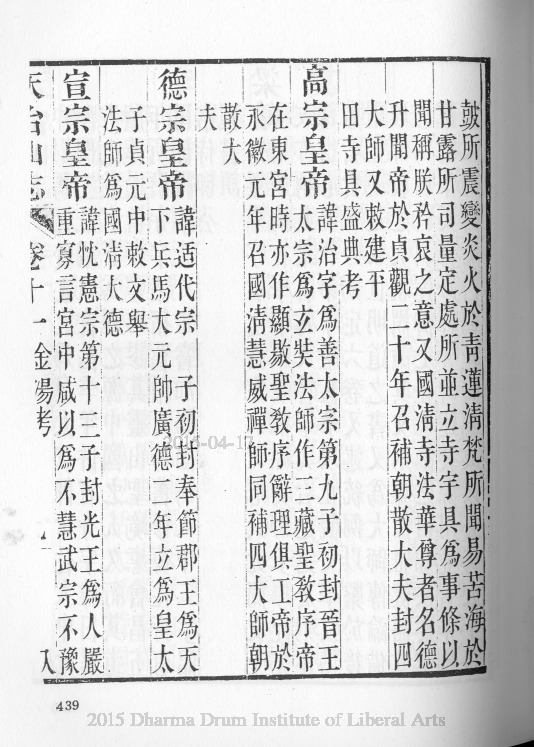 鼓所震變炎火於青蓮清梵所聞易苦海於
甘露所司量定處所並立寺宇具為事條以
聞稱朕矜哀之意又國清寺法華尊者名德
升聞帝於貞觀二十年召補朝散大夫封四
大師又敕建平
田寺具盛典考
高宗皇帝諱治字為善太宗第九子初封晉王
太宗為立奘法師作三藏聖教序帝
在東宮時亦作顯敭聖教序辭理俱工帝於
永徽元年召國清慧威禪師同補四大師朝
散大
夫
德宗皇帝諱适代宗 子初封奉節郡王為天
下兵馬大元帥廣德二年立為皇太
子貞元中敕文舉
法師為國清大德
宣宗皇帝諱忱憲宗第十三子封光王為人嚴
重寡言宮中咸以為不慧武宗不豫
天台山志 卷十一 金湯考 八
2015-04-17
439
2015 Dharma Drum Institute of Liberal Arts